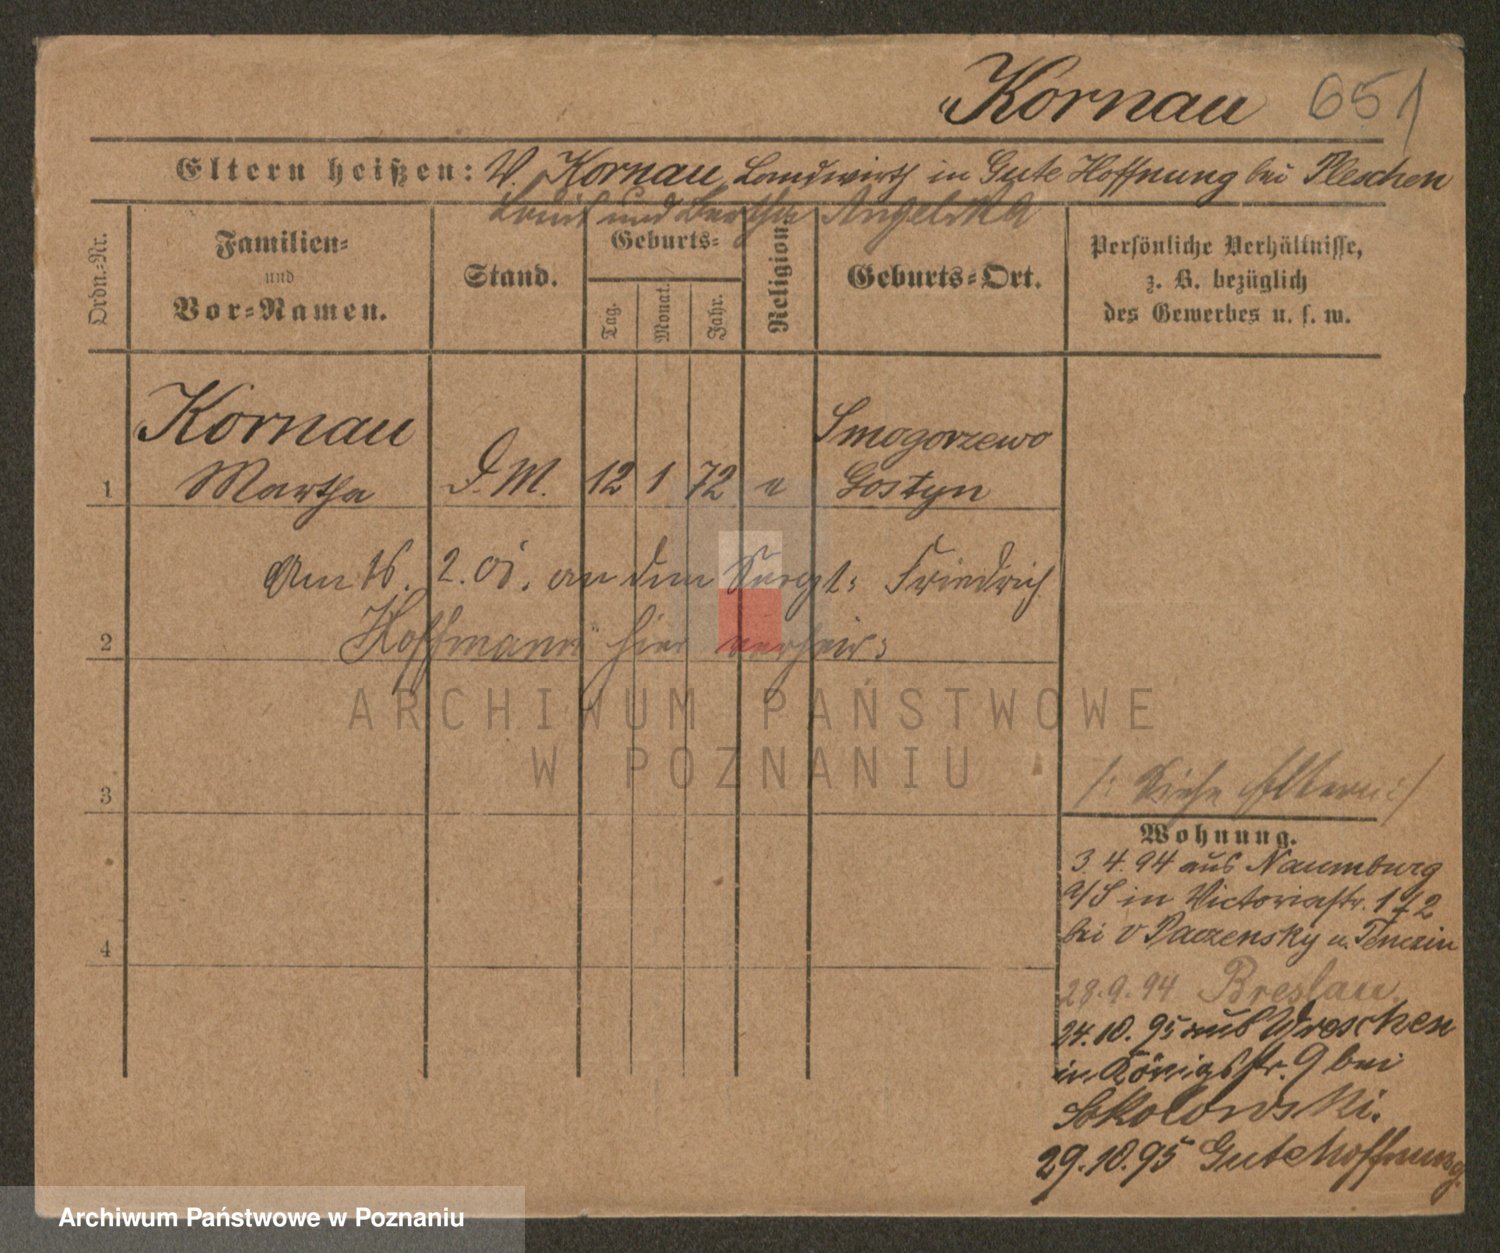 Kornau 651
Eltern heißen: V. Kornau, Landwirth in Gute Hoffnung bei Pleschen
Louis und Bertha Angelika
Ordn.-Nr.
Familien-
und
Vor-Namen.
Stand.
Geburts-
Tag.
Monat.
Jahr.
Religion.
Geburts-Ort.
Persönliche Verhältnisse,
z. B. bezüglich
des Gewerbes u. s. w.
Kornau
1 Martha D. M. 12 1 72 e
Smogorzewo
Gostyn
Am 16. 2. 01. an den Sergt: Friedrich
2 Hoffmann hier verheir:
3
4
/: Siehe Eltern :/
Wohnung.
3. 4. 94 aus Naumburg
a/S in Victoriastr. 1
bei v Paczensky u. Tenczin
28. 9. 94 Breslau
24. 10. 95 aus Wreschen
in Königsstr. 9 bei
Sokolowski.
29. 10. 95 Gute Hoffnung
ARCHIWUM PAŃSTWOWE
W POZNANIU
Archiwum Państwowe w Poznaniu